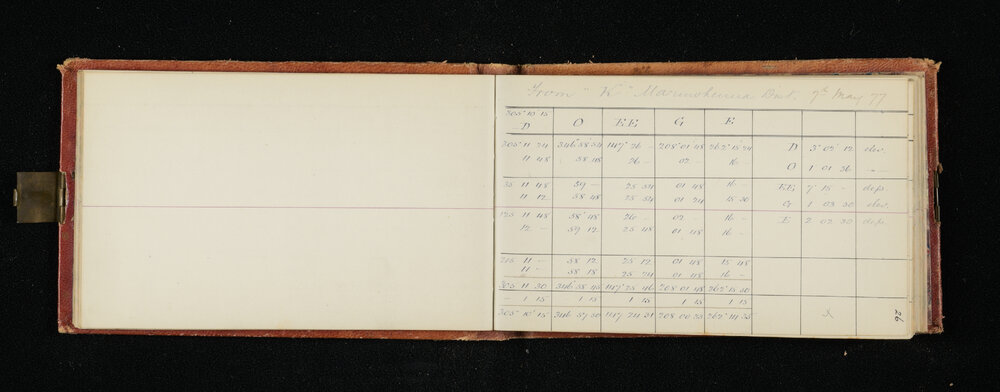 From "K" Marunohunua Dist. 7th May 77
305° 10' 15
D O EE G E
305 11 24 346 58 54 147 26 - 208 01 48 262 15 24 D 3° 02' 12 elev.
11 48 58 48 26 - 02 16 - O 1 01 36 "
35 11 48 59 - 25 54 01 48 16 - EE 7 15 - deps
11 12 58 48 25 54 01 24 15 30 G 1 03 30 elev.
125 11 48 58 48 26 - 02 - 16 - E 2 02 30 deps
12 - 59 12 25 48 01 48 16 -
215 11 - 58 12 25 12 01 48 15 48
11 - 58 18 25 24 01 48 16 -
305 11 30 346 58 45 147 25 46 208 01 48 262 15 50
- 1 15 1 15 1 15 1 15 1 15
305° 10' 15 346 57 30 147 24 31 208 00 33 262 14 35
26